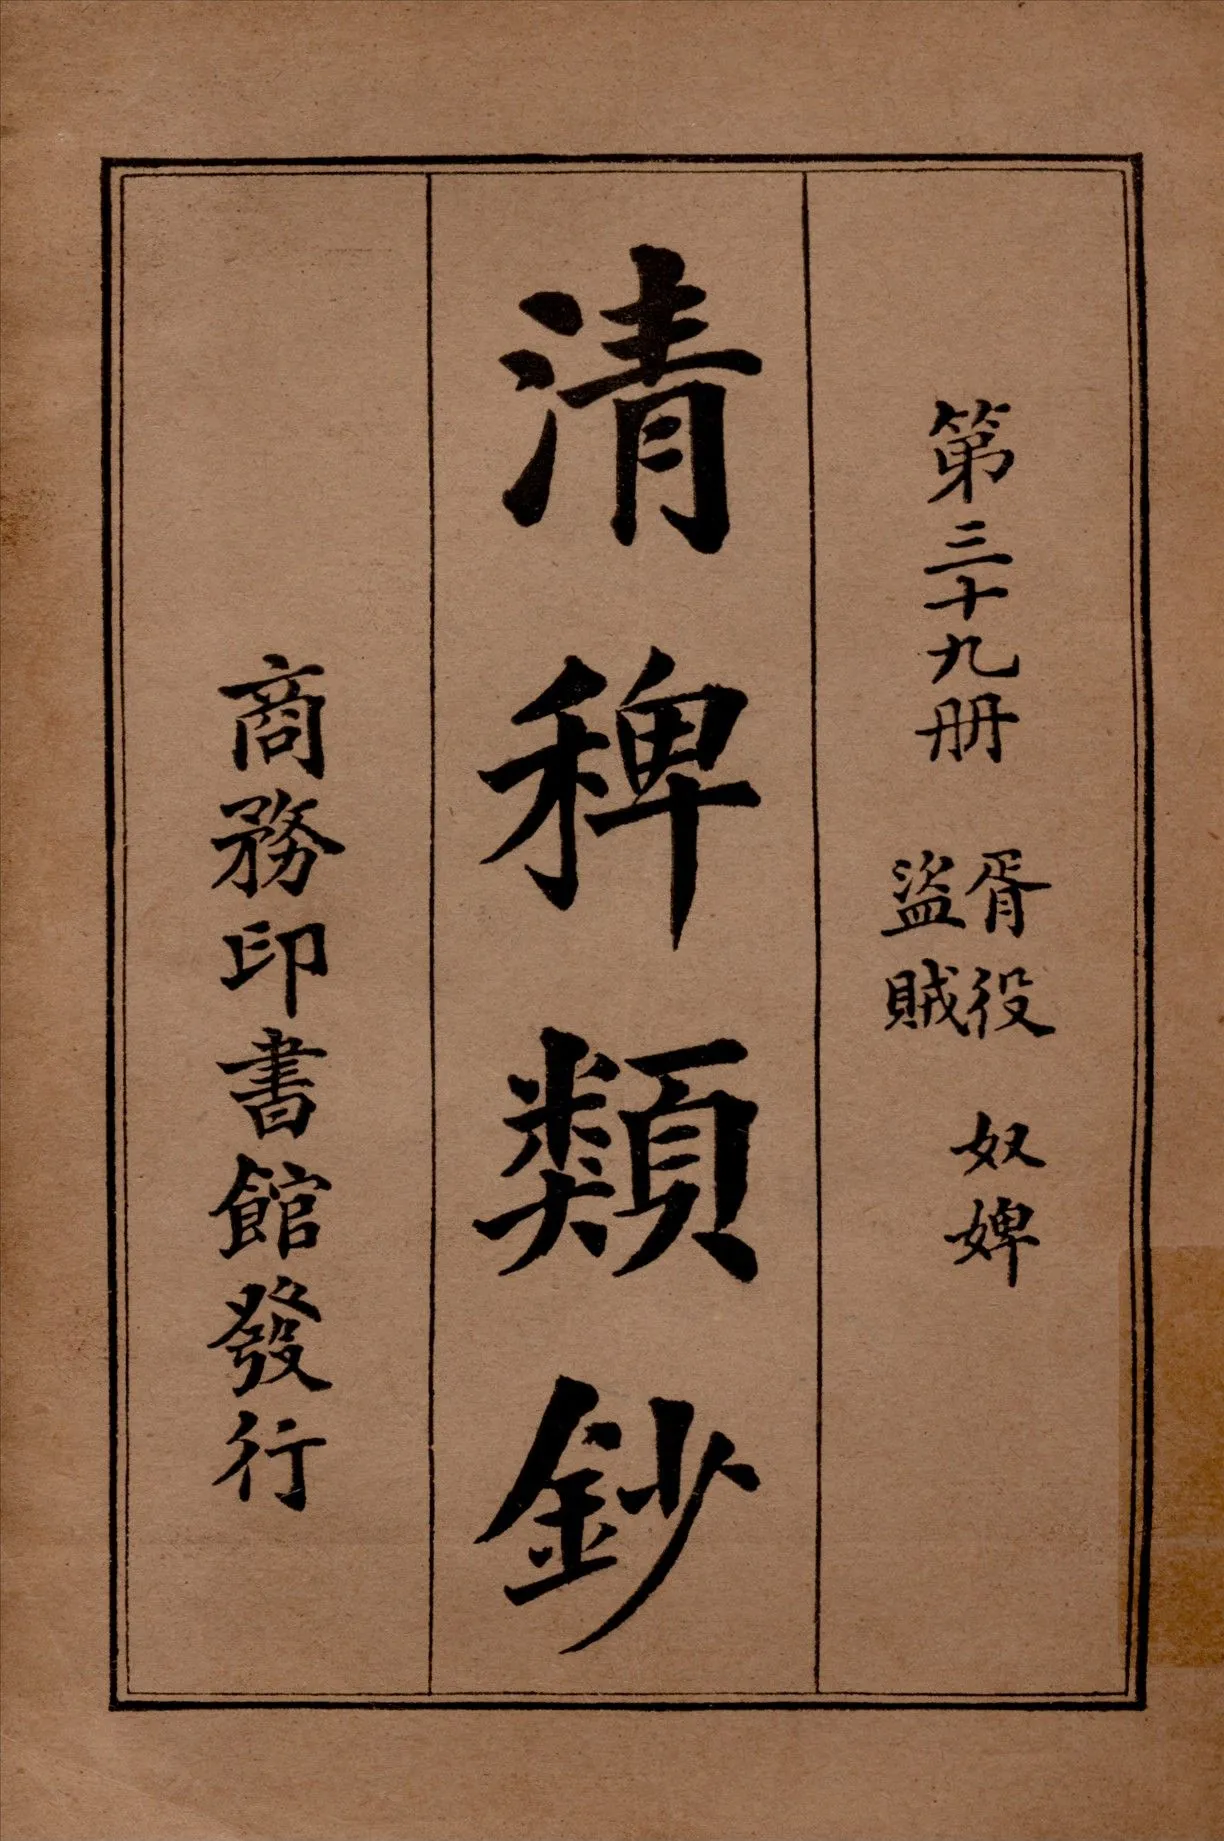 第三十九册
胥役 奴婢
盜賊
清稗類鈔
商務印書館發行